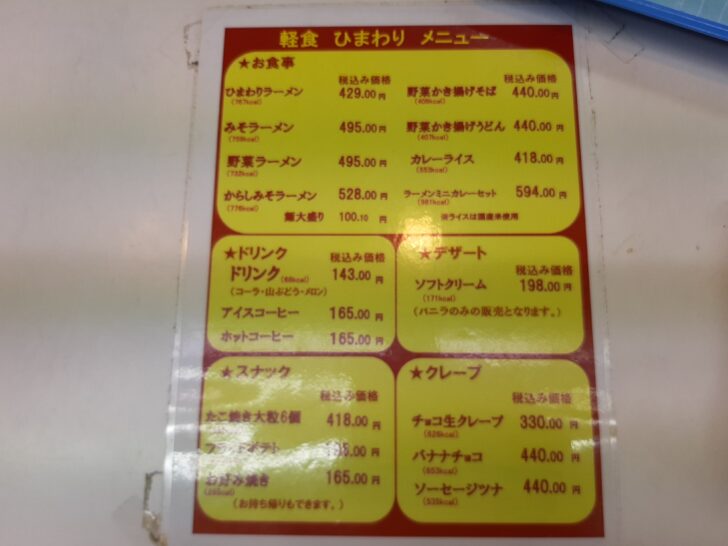 軽食 ひまわり メニュー
★お食事
税込み価格
ひまわりラーメン 429.00 円
(767kcal)
みそラーメン 495.00 円
(759kcal)
野菜ラーメン 495.00 円
(732kcal)
からしみそラーメン 528.00 円
(776kcal)
麺大盛り 100.10 円
税込み価格
野菜かき揚げそば 440.00 円
(408kcal)
野菜かき揚げうどん 440.00 円
(407kcal)
カレーライス 418.00 円
(553kcal)
ラーメンミニカレーセット 594.00 円
(981kcal)
※ライスは国産米使用
★ドリンク
税込み価格
ドリンク(68kcal) 143.00 円
(コーラ・山ぶどう・メロン)
アイスコーヒー 165.00 円
ホットコーヒー 165.00 円
★デザート
税込み価格
ソフトクリーム 198.00 円
(171kcal)
(バニラのみの販売となります。)
★スナック
税込み価格
たこ焼き大粒6個 418.00 円
フライドポテト 円
お好み焼き 165.00 円
(お持ち帰りもできます。)
★クレープ
税込み価格
チョコ生クレープ 330.00 円
(626kcal)
バナナチョコ 440.00 円
(653kcal)
ソーセージツナ 440.00 円
(535kcal)